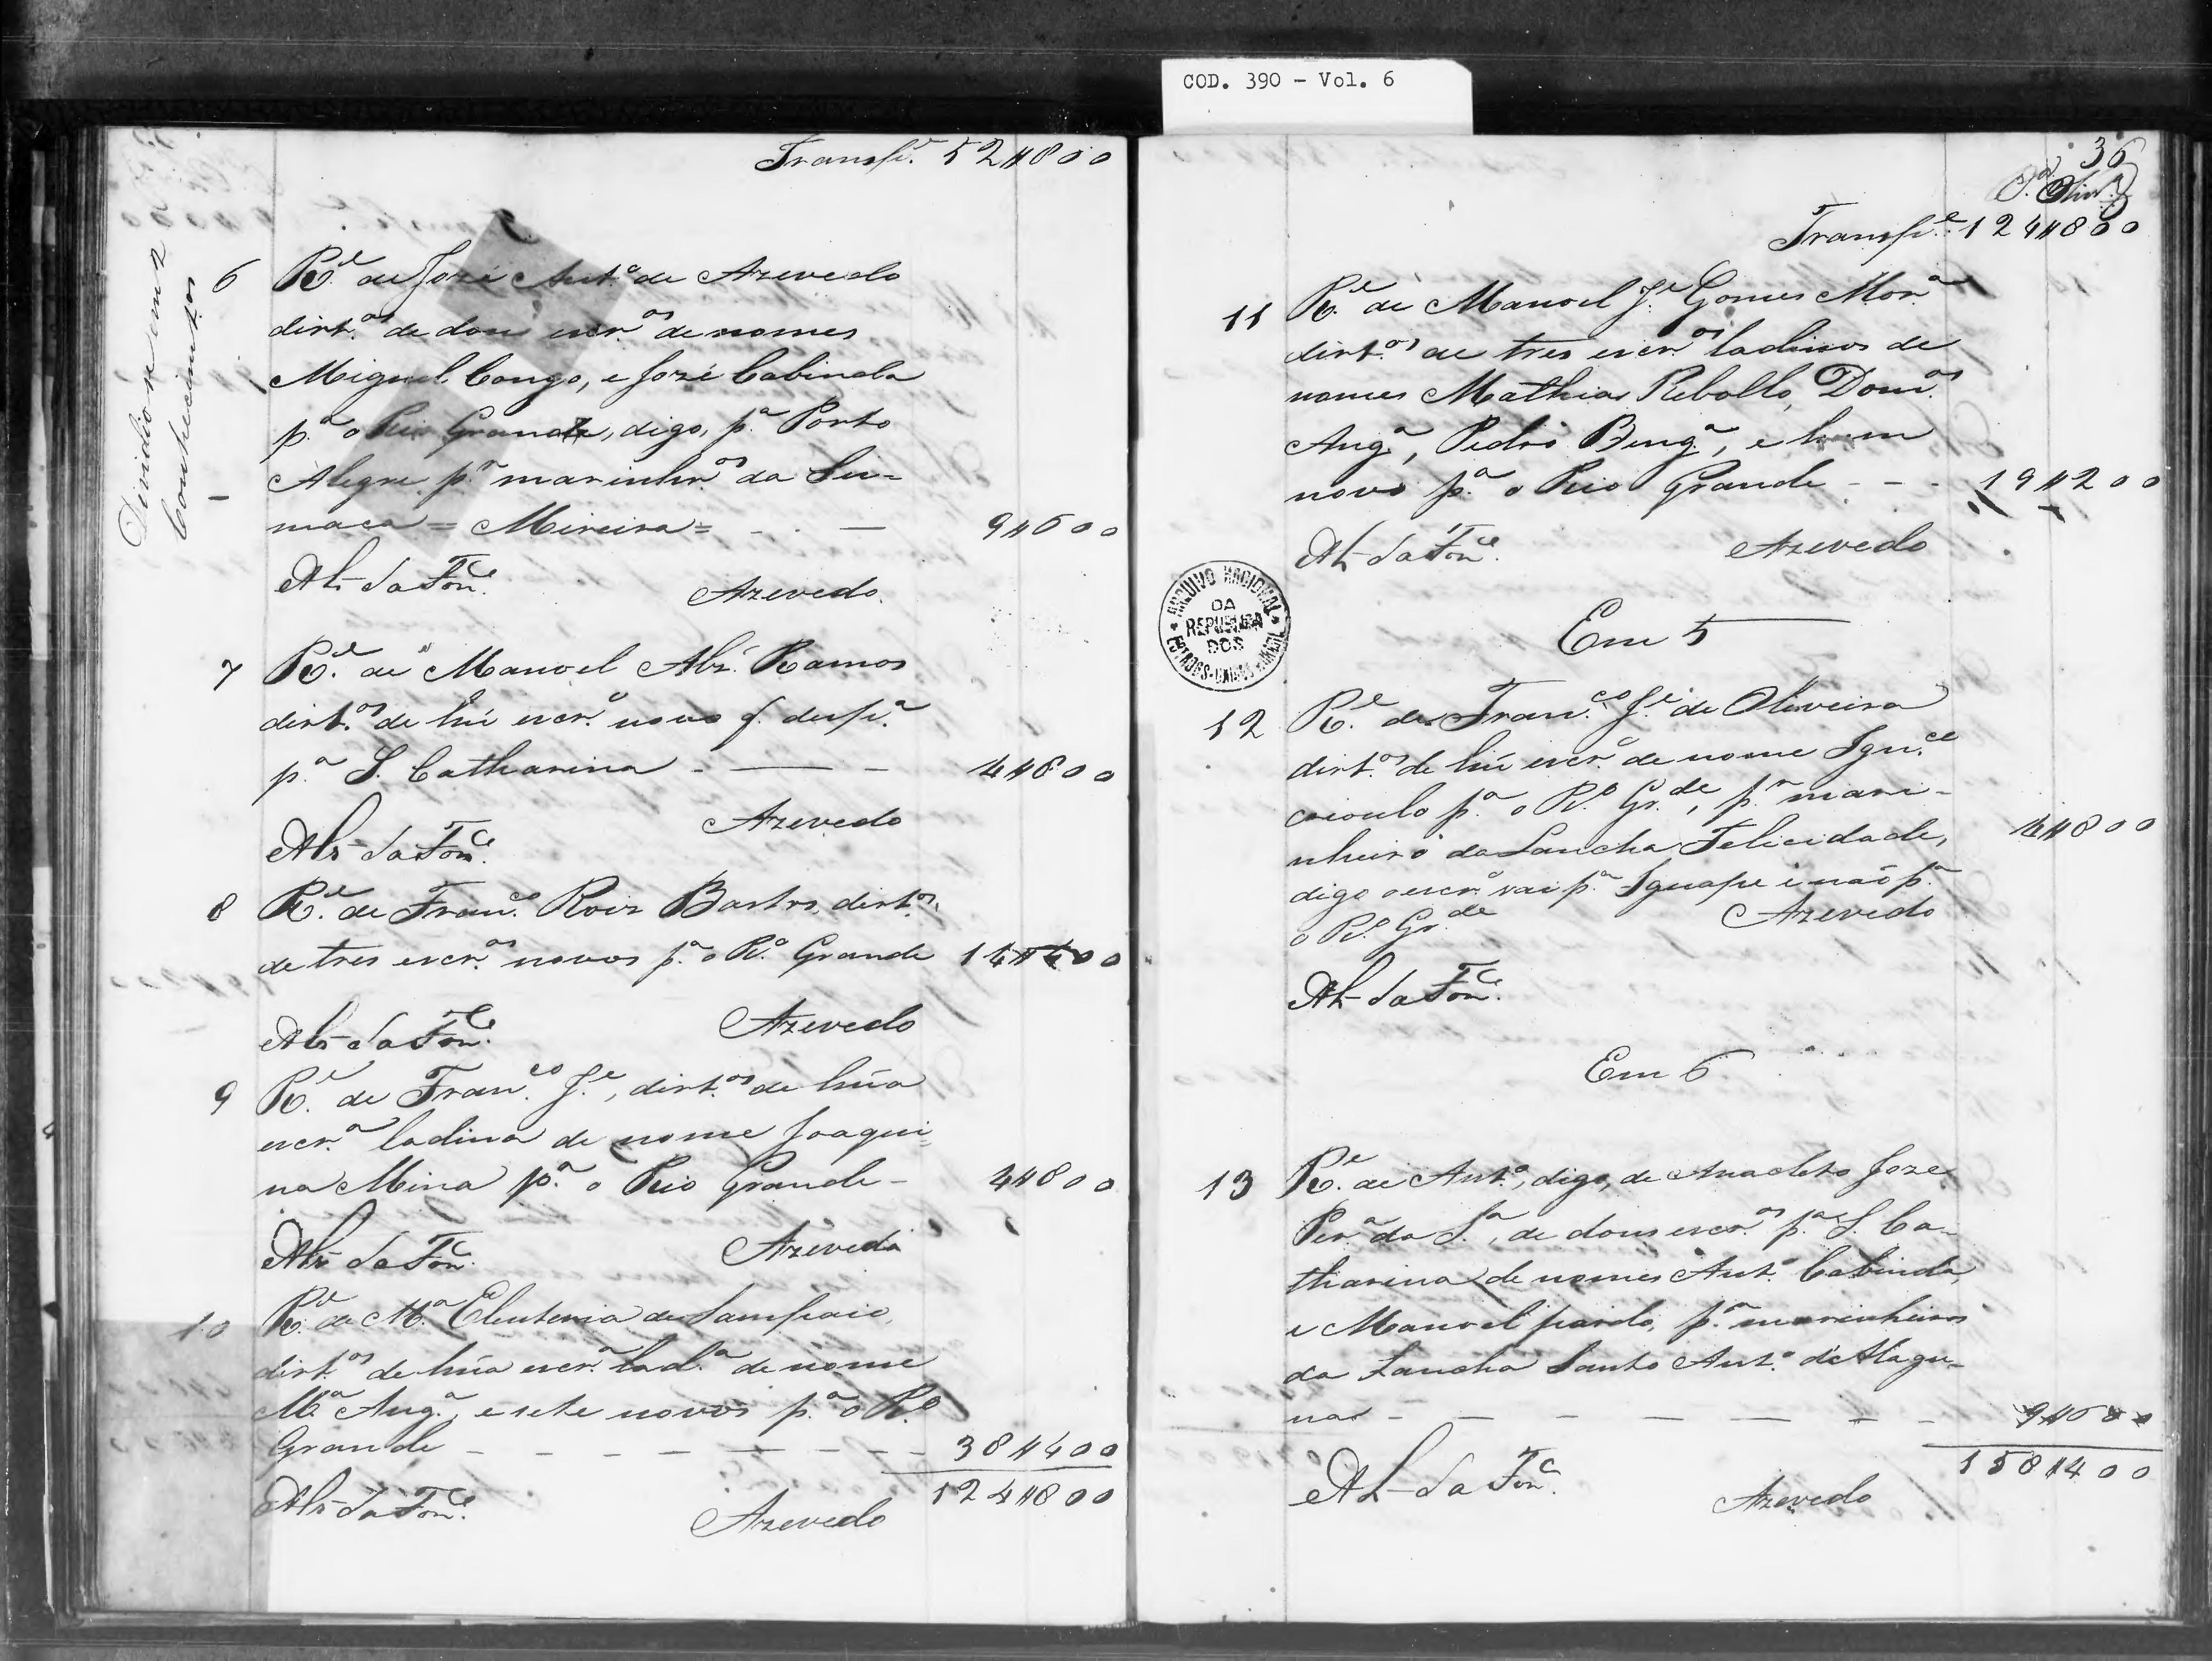 COD. 390 - Vol. 6
Transpe. 52#800
Dividio-se em 2
Conhecimentos
6 Re. de José Anto. de Azevedo
dirtos. de dous escros. de nomes
Miguel Congo, e José Cabinda
pa. o Rio Grande, digo, pa. Porto
Alegre pr. marinhros. da Su-
maca = Mineira = - - 9#600
Alz da Fonce.
Azevedo.
7 Re. de Manoel Alz. Ramos
dirtos. de hũ escro. novo q. despa.
pa. S. Catharina - — - 4#800
Azevedo
Alz da Fonce.
8 Re. de Franco. Roiz Bastos, dirtos.
de tres escros. novos pa. o Ro. Grande 14#400
Alz da Fonce. Azevedo
9 Re. de Franco. Je., dirtos. de hũa
escra. ladina de nome Joaqui-
na Mina pa. o Rio Grande - 4#800
Alz da Fonce. Azevedo
10 Re. de Ma. Eleuteria de Sampaio,
dirtos. de hũa escra. lada. de nome
Ma. Anga., e sete novos pa. o Ro.
Grande - - - - - - - 38#400
124#800
Alz da Fonce. Azevedo
36
Transpe. 124#800
11 Re. de Manoel Je. Gomes Mora.
dirtos. de tres escros. ladinos de
nomes Mathias Rebollo, Domos.
Anga., Pedro Benga., e hum
novo pa. o Rio Grande - - - 19#200
Alz da Fonce. Azevedo
ARQUIVO NACIONAL
DA
REPUBLICA
DOS
ESTADOS-UNIDOS BRASIL
Em 5
12 Re. de Franco. Je. de Oliveira
dirtos. de hũ escro. de nome Ignce.
crioulo pa. o Ro. Grde., pr. mari-
nheiro da Lancha Felicidade, 4#800
digo o escro. vai pa. Iguape e não pa.
o Ro. Grde. Azevedo
Alz da Fonce.
Em 6
13 Re. de Anto., digo, de Anacleto Joze
Pera. da Sa., de dous escros. pa. S. Ca-
tharina de nomes Anto. Cabinda,
e Manoel pardo, pr. marinheiros
da Lancha Santo Anto. d'Alagu-
nas - - - - - - - 9#600
158#400
Alz da Fonce.
Azevedo